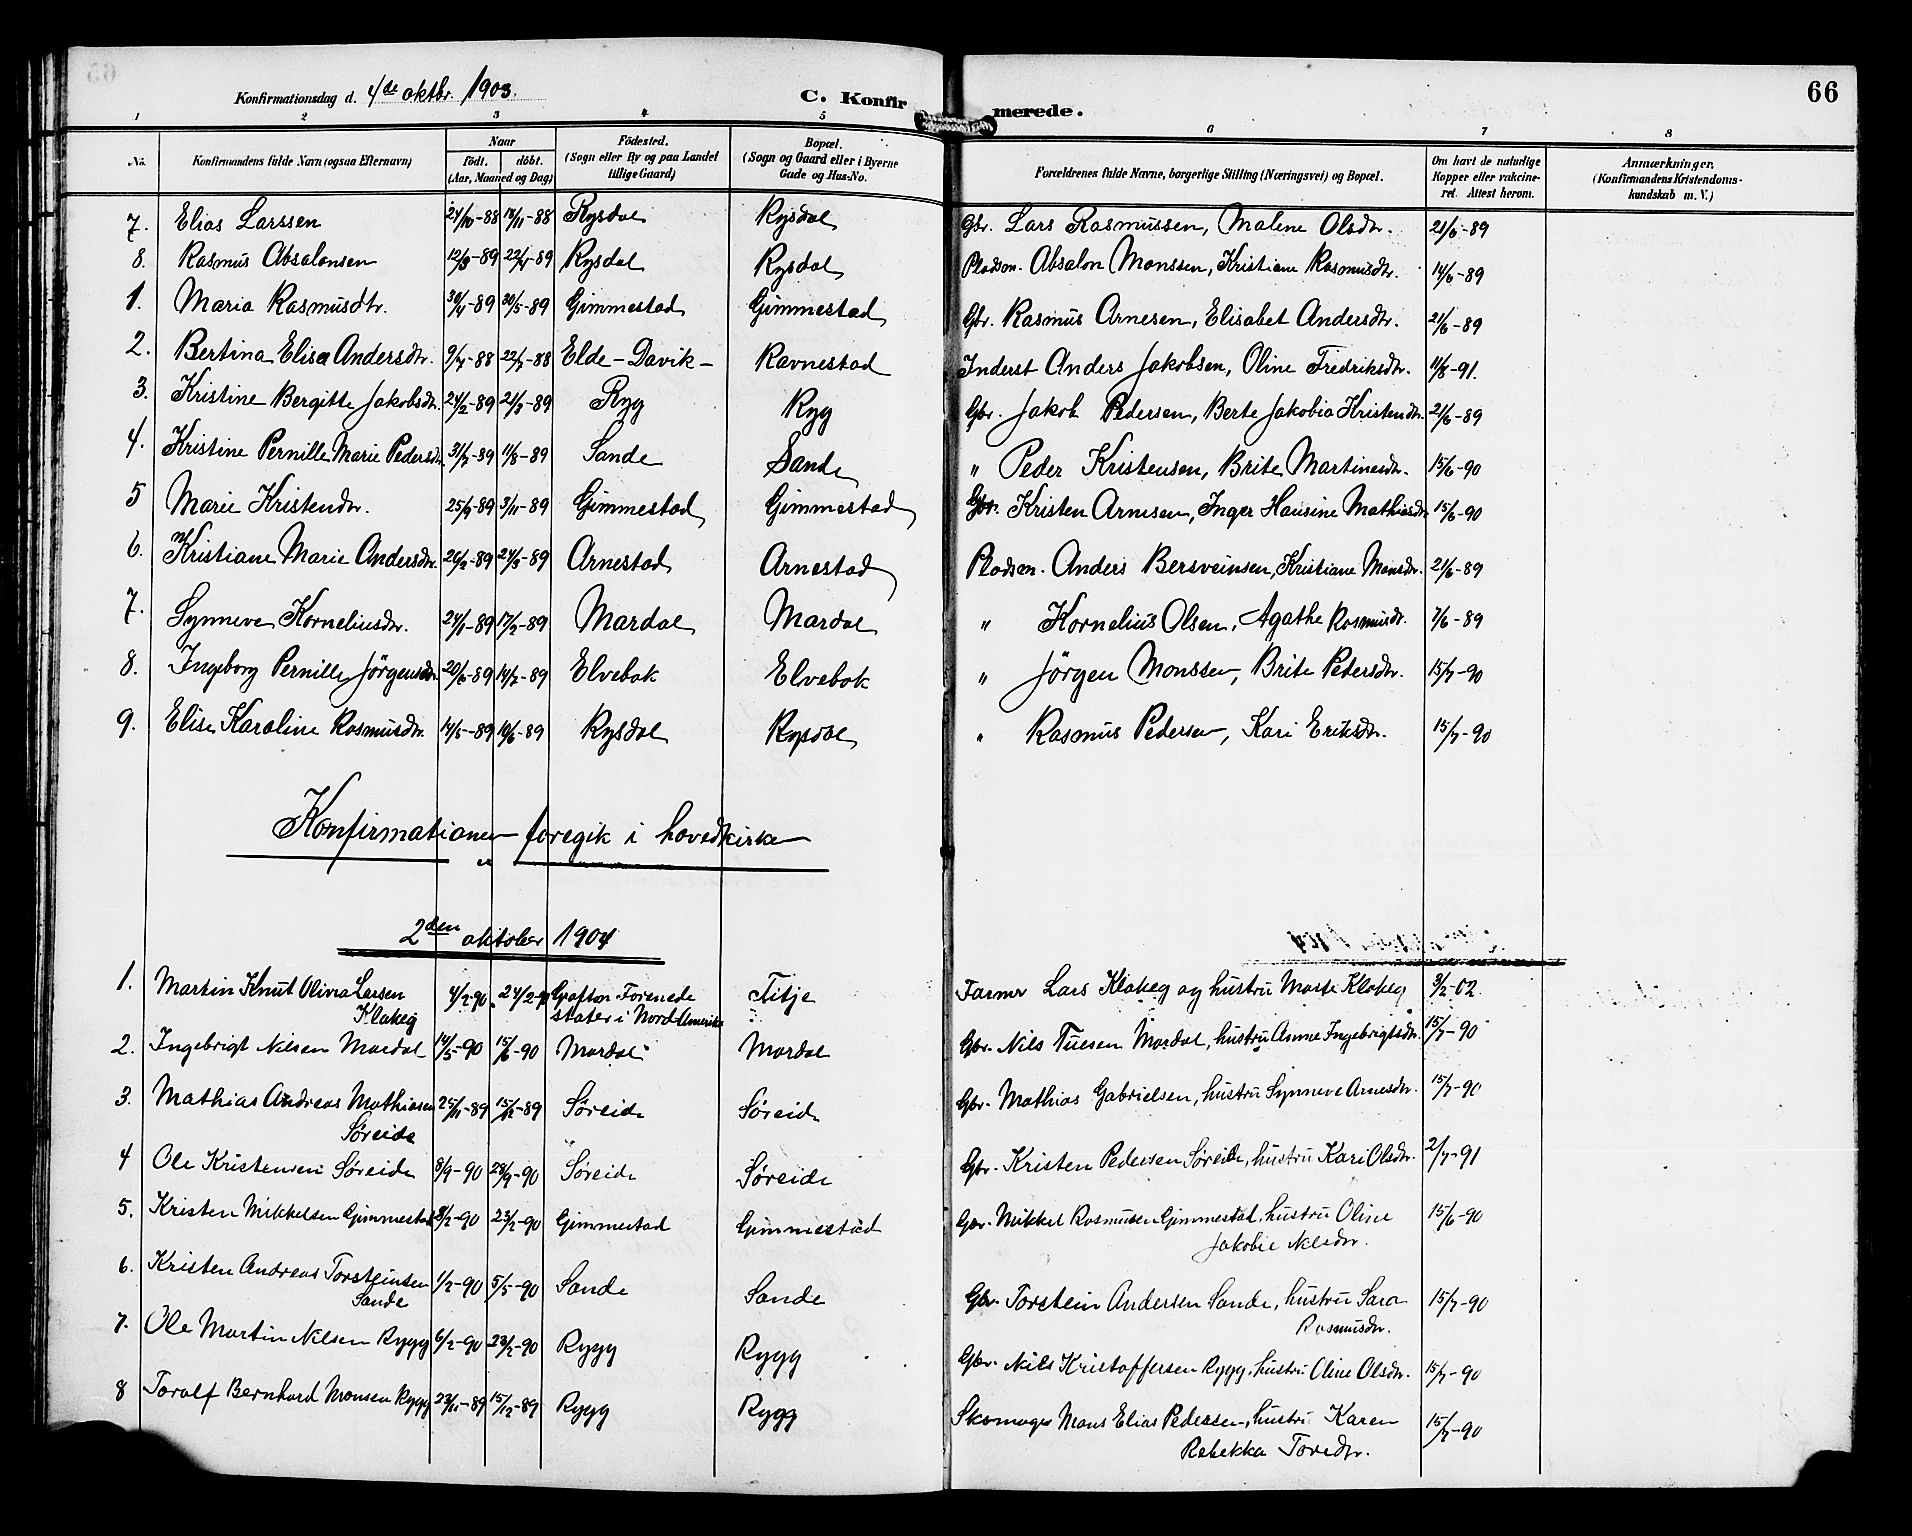 Konfirmationsdag d. 4de oktbr. 1903. C. Konfirmerede. 66
1 2 3 4 5 6 7 8
No. Konfirmandens fulde Navn (ogsaa Efternavn) Naar födt. döbt. (Aar, Maaned og Dag) Födested. (Sogn eller By og paa Landet tillige Gaard) Bopæl. (Sogn og Gaard eller i Byerne Gade og Hus-No. Forældrenes fulde Navne, borgerlige Stilling (Næringsvei) og Bopæl. Om havt de naturlige Kopper eller vakcineret. Attest herom. Anmærkninger. (Konfirmandens Kristendomskundskab m. V.)
7. Elias Larssen 24/10-88 18/11-88 Rysdal Rysdal Gbr. Lars Rasmussen, Malene Olsdtr. 21/6-89
8. Rasmus Absalonsen 12/3-89 22/4-89 Rysdal Rysdal Pladsm. Absalon Monssen, Kristiane Rasmusdtr. 14/6-89
1. Maria Rasmusdtr. 30/4-89 30/5-89 Gimmestad Gimmestad Gbr. Rasmus Arnesen, Elisabet Andersdtr. 21/6-89
2. Bertina Elisa Andersdtr. 9/7-88 22/7-88 Elde-Davik- Ravnestad Inderst Anders Jakobsen, Oline Fredriksdtr. 11/8-91.
3. Kristine Bergitte Jakobsdtr. 24/2-89 21/3-89 Ryg Ryg Gbr. Jakob Pedersen, Berte Jakobia Kristendtr. 21/6-89
4. Kristine Pernille Marie Pedersdtr. 31/7-89 11/8-89 Sande Sande " Peder Kristensen, Brite Martinesdtr. 15/6-90
5 Marie Kristendtr. 25/9-89 3/11-89 Gimmestad Gimmestad Gbr. Kristen Arnesen, Inger Hansine Mathiasdtr. 15/6-90
6. Kristiane Marie Andersdtr. 26/2-89 24/3-89 Arnestad Arnestad Pladsm. Anders Bersveinsen, Kristiane Monsdtr. 21/6-89
7. Synneve Korneliusdtr. 24/1-89 17/2-89 Mardal Mardal " Kornelius Olsen, Agathe Rasmusdtr. 7/6-89
8. Ingeborg Pernille Jörgensdtr. 20/6-89 14/7-89 Elvebak Elvebak " Jörgen Monssen, Brite Pedersdtr. 15/7-90
9. Elise Karoline Rasmusdtr. 14/5-89 10/6-89 Rysdal Rysdal " Rasmus Pedersen, Kari Eriksdtr. 15/7-90
Konfirmationen foregik i hovedkirken
2den oktober 1904
1. Martin Knut Olivia Larsen Klakeg 4/2-90. 24/2-90 Grafton Forenede stater i Nord-Amerika Titje Farmer Lars Klakeg og hustru Marte Klakeg 3/2-02
2. Ingebrigt Nilsen Mardal 14/5-90 15/6-90 Mardal Mardal Gbr. Nils Tuesen Mardal, hustru Anne Ingebrigtsdtr. 15/7-90
3. Mathias Andreas Mathiasen Søreide 25/11-89 15/12-89 Søreide Søreide Gbr. Mathias Gabrielsen, hustru Synneve Arnesdtr. 15/7-90
4 Ole Kristensen Søreide 8/9-90 28/9-90 Søreide Søreide Gbr. Kristen Pedersen Søreide, hustru Kari Olsdtr. 2/7-91
5. Kristen Mikkelsen Gimmestad 8/2-90 23/2-90 Gimmestad Gimmestad Gbr. Mikkel Rasmusen Gimmestad, hustru Oline Jakobie Nilsdtr. 15/6-90
6. Kristen Andreas Torsteinsen Sande 1/2-90 5/5-90 Sande Sande Gbr. Torstein Andersen Sande, hustru Sara Rasmusdtr. 15/7-90
7. Ole Martin Nilsen Rygg 6/2-90 23/2-90 Rygg Rygg Gbr. Nils Kristoffersen Rygg, hustru Oline Olsdtr. 15/7-90
8 Toralf Bernhard Monsen Rygg 23/11-89 15/12-89 Rygg Rygg Skomager Mons Elias Pedersen, hustru Karen Rebekka Toredtr. 15/7-90